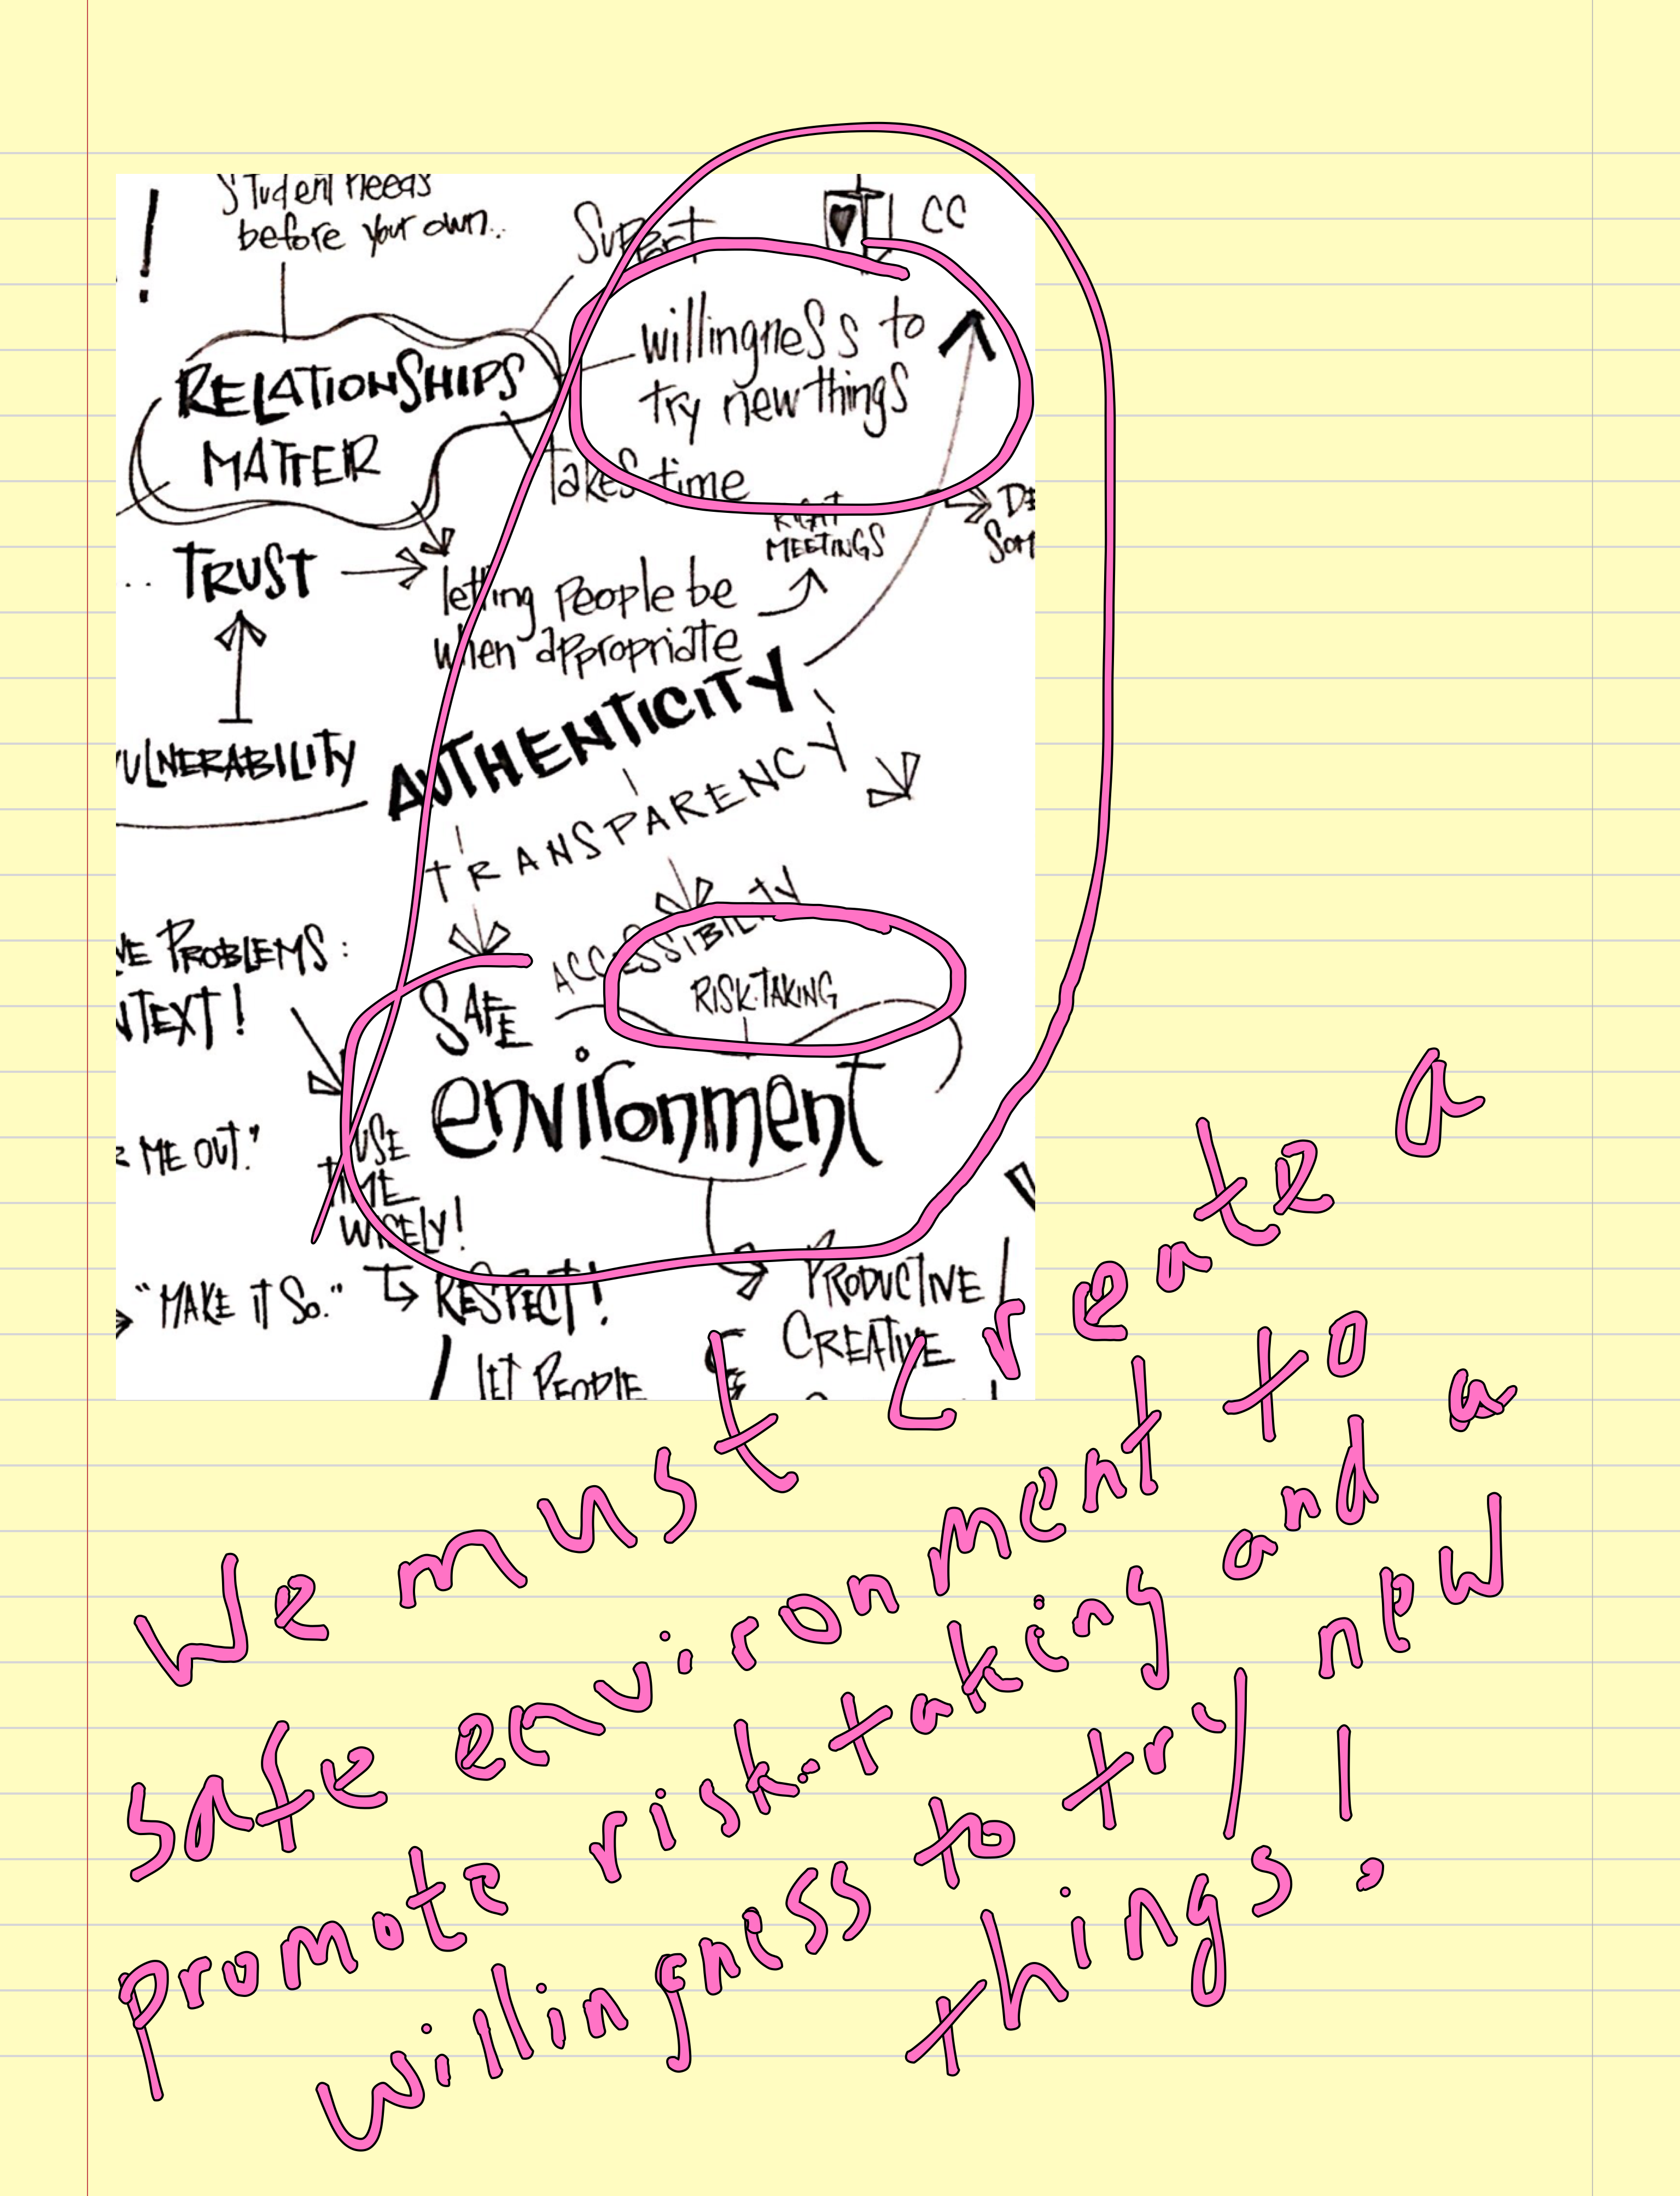 Student needs
before your own..
!
Support
CC
willingness to
try new things
RELATIONSHIPS
MATTER
takes time
MEETINGS
.. TRUST
letting people be
when appropriate
VULNERABILITY
AUTHENTICITY
TRANSPARENCY
ACCESSIBILITY
PROBLEMS:
RISK-TAKING
SAFE
environment
ME OUT."
USE
TIME
WISELY!
"MAKE IT SO."
RESPECT!
PRODUCTIVE
CREATIVE
LET PEOPLE
We must create a
safe environment to
promote risk-taking and a
willingness to try new
things!